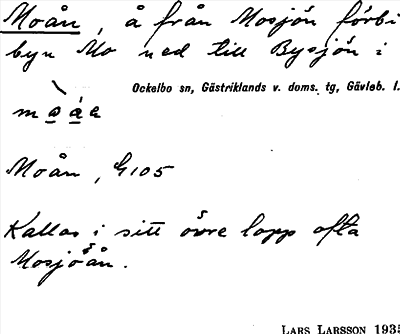 Moån, å från Mosjön förbi
byn Mo ned till Bysjön i
Ockelbo sn, Gästriklands v. doms. tg, Gävleb. l.
Moån, G105
Kallas i sitt övre lopp ofta
Mosjöån.
LARS LARSSON 1935